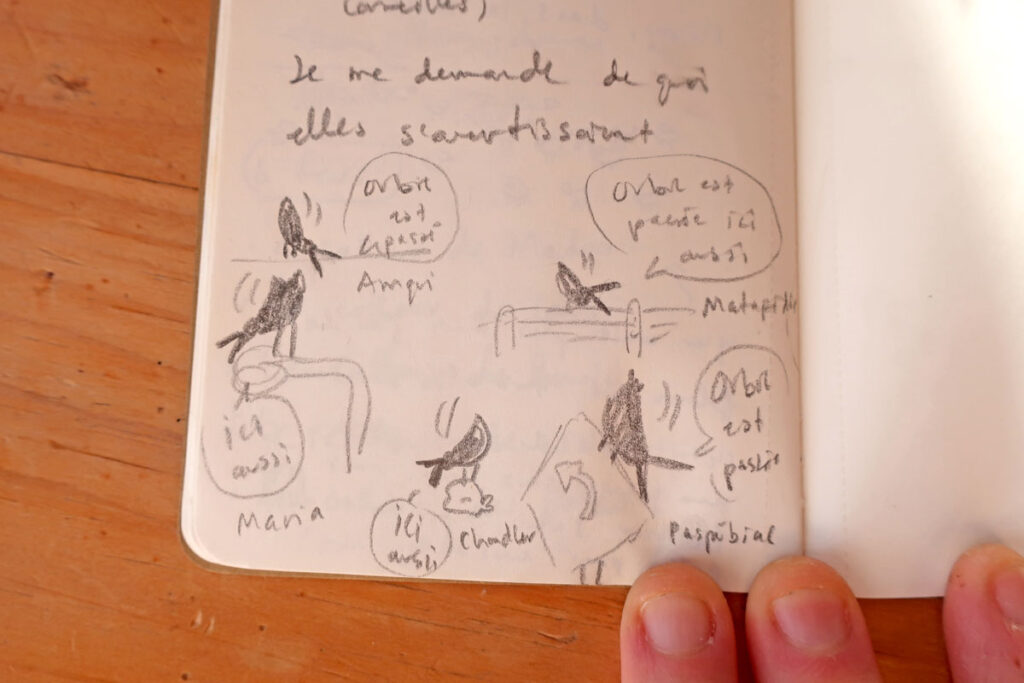 corneilles)
Je me demande de quoi
elles s'avertissaient
Orbie
est
Amqui
Orbie est
passée ici
aussi
Matapédia
ici
aussi
Maria
ici
aussi
Chandler
Orbie
est
passée
Paspébiac